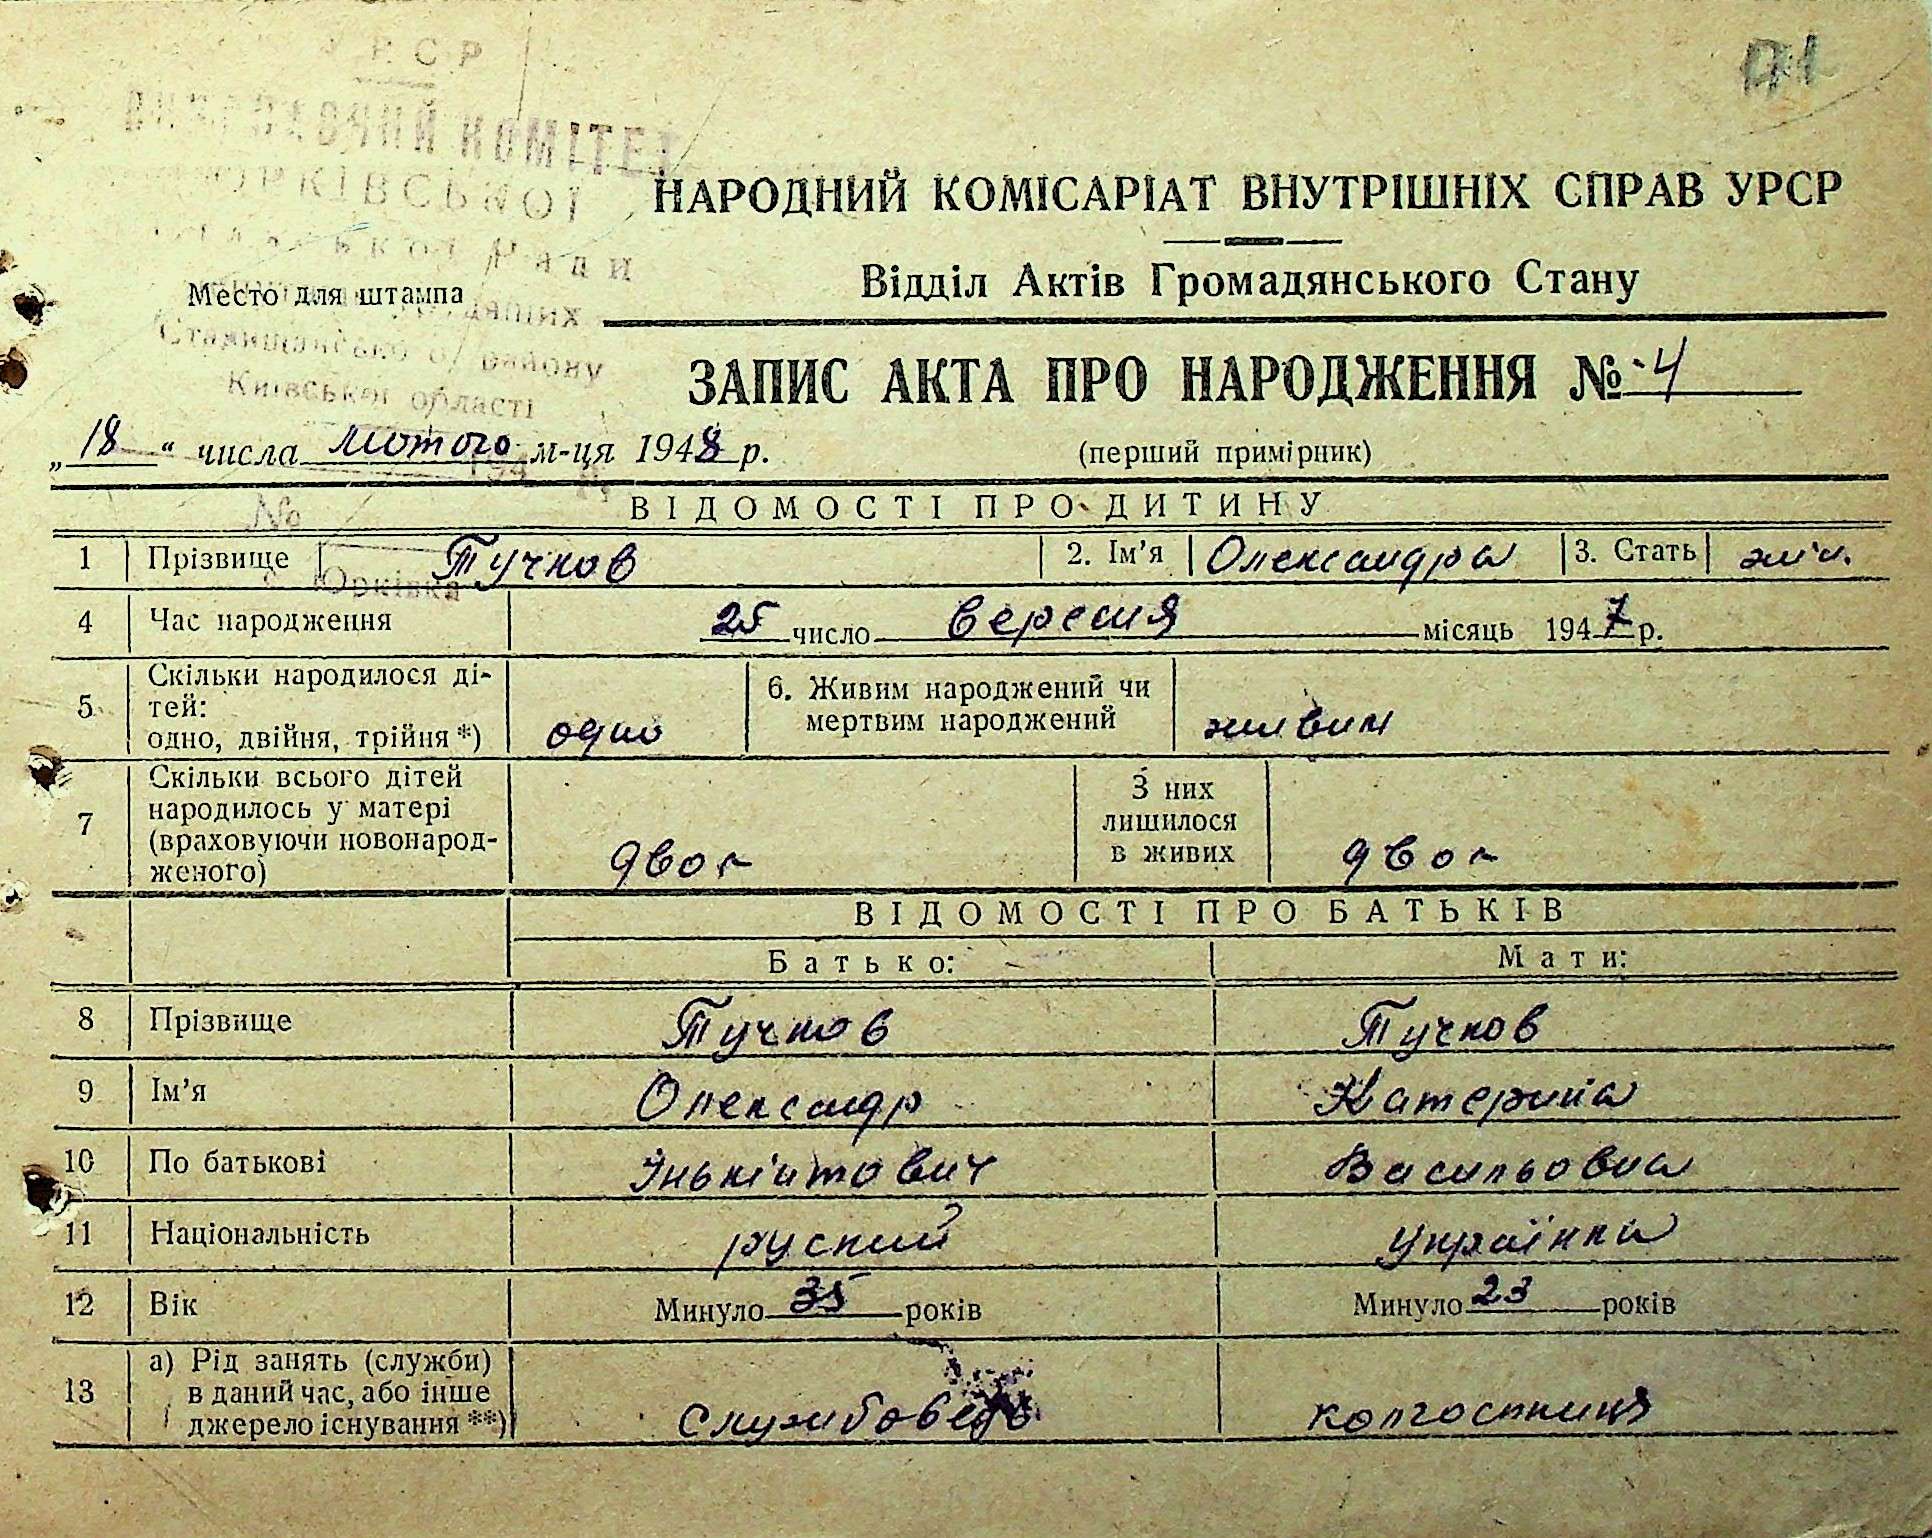 УРСР
ВИКОНАВЧИЙ КОМІТЕТ
ЮРКІВСЬКОЇ
Ради
171
НАРОДНИЙ КОМІСАРІАТ ВНУТРІШНІХ СПРАВ УРСР
Место для штампа
Відділ Актів Громадянського Стану
Ставищанського району
Київської області
ЗАПИС АКТА ПРО НАРОДЖЕННЯ № 4
„18“ числа лютого м-ця 1948 р.
(перший примірник)
194 р.
№
ВІДОМОСТІ ПРО ДИТИНУ
1 Прізвище Тучков 2. Ім’я Олександра 3. Стать жін.
Юрківка
4 Час народження 25 число вересня місяць 1947 р.
5 Скільки народилося ді-
тей:
одно, двійня, трійня *) одно
6. Живим народжений чи
мертвим народжений живим
7 Скільки всього дітей
народилось у матері
(враховуючи новонарод-
женого) двоє
З них
лишилося
в живих двоє
ВІДОМОСТІ ПРО БАТЬКІВ
Батько: Мати:
8 Прізвище Тучков Тучков
9 Ім’я Олександр Катерина
10 По батькові Васильовна
11 Національність руский українка
12 Вік Минуло 35 років Минуло 23 років
13 а) Рід занять (служби)
в даний час, або інше
джерело існування **) Службовець колгоспниця